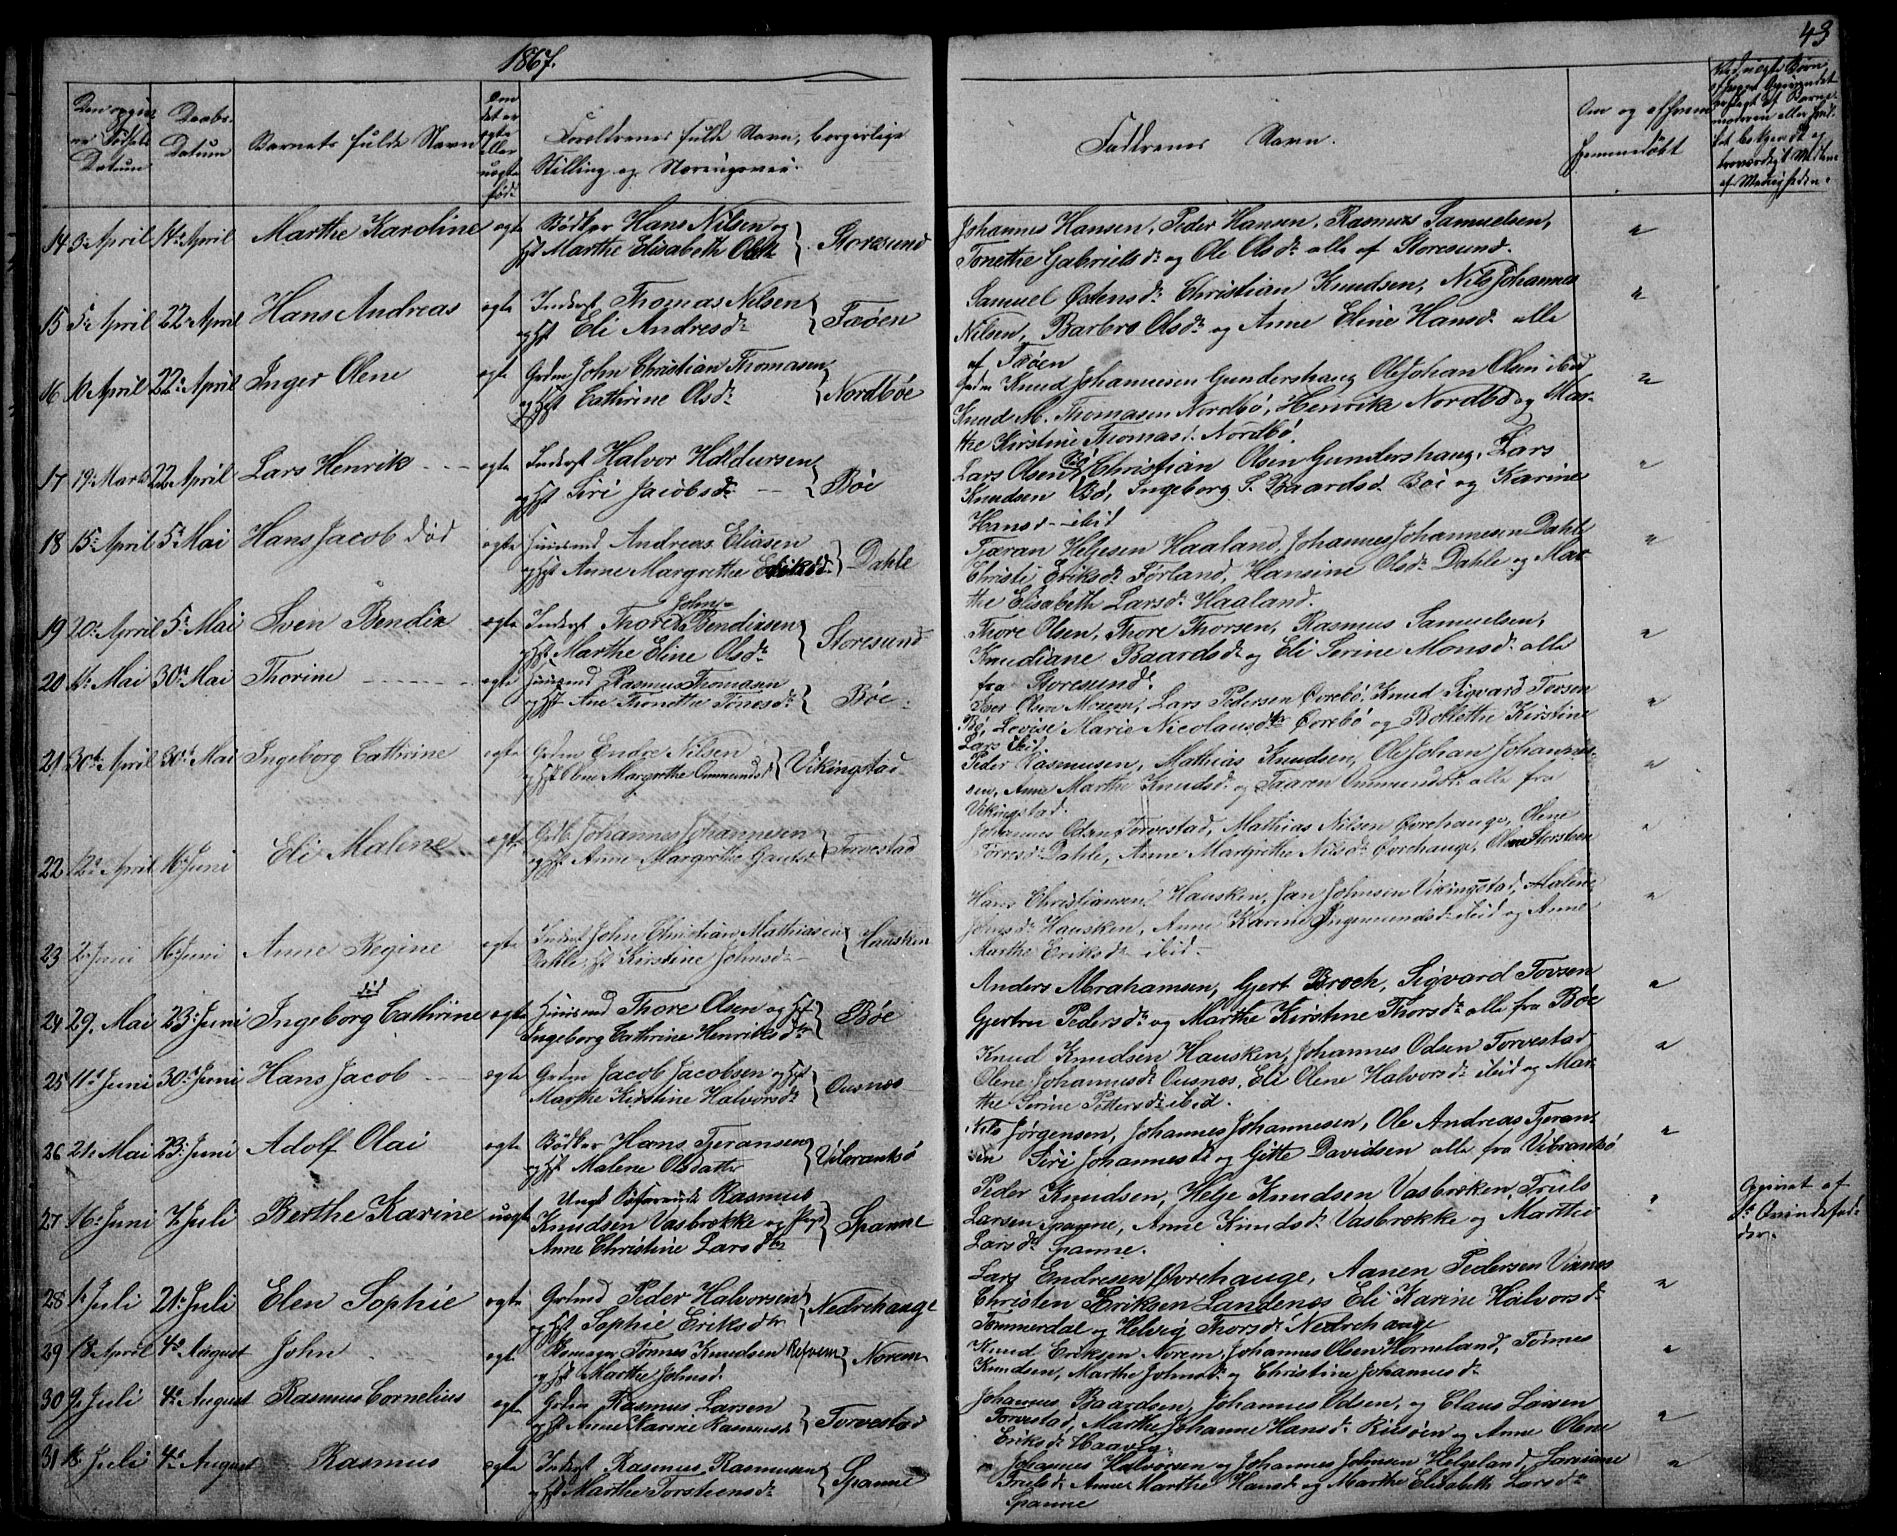 43
1867.
Datum
Daabs
Datum
Barnets fulde Navn
Om
det er
ægte
eller
uægte
født
Forældrenes fulde Navn, borgerlige
Stilling og Næringsvei.
Faddrenes Navn.
hjemmedøbt
14 3 April 14de April Marthe Karoline ægte Bødker Hans Nilsen og
Marthe Elisabeth Storesund
Johannes Hansen, Peder Hansen, Rasmus Samuelsen,
Tonethe Gabrielsdr og Ole Olsdr alle af Storesund.
15 5te April 22de April Hans Andreas ægte Inderst Thomas Nilsen
og Hst Eli Andresdr Fæøen
Samuel Østensdr Christian Knudsen, Nils Johannes
Nilsen, Barbro Olsdr og Anne Eline Hansdr alle
af Fæøen
16 April 22de April Inger Olene ægte Grdm John Christian Thomasen
og Hst Cathrine Olsdr Nordbøe
Knud Johannesen Gundershaug Ole Johan Olsen ibid
Knud M. Thomasen Nordbö, Henrike Nordbö og Mar-
the Kirstine Thomasd. Nordbö.
17 19de Marts 22 April Lars Henrik ægte Inderst Halvor
og Hst Siri Jacobsdr Bøe
Lars Olsen Bö Christian Olsen Gundershaug, Lars
Knudsen Bö, Ingeborg S. Baardsd. Böe og Karine
Hansd. ibid
18 15de April 5te Mai Hans Jacob død ægte Huusmd Andreas Eliasen
og Hst Anne Margrethe Dahle
Tjæran Helgesen Haaland, Johannes Johannesen Dahle
Christi Eriksdr Förland, Hansine Olsdr Dahle og Mar
the Elisabeth Larsdr Haaland.
19 20de April 5te Mai Sven Bendix ægte Inderst Thore John Bendixsen
og Hst Marthe Eline Olsdr Storesund
Thore Olsen, Thore Thorsen, Rasmus Samuelsen,
Knudiane Baardsdr og Eli Serine Monsd. alle
fra Storesund.
20 Mai 30te Mai Thorine ægte Huusmd Rasmus Thomasen
og Hst Ane Thonette Tönesdr Bøe
Olsen Lars Pedersen Øvrebö, Knud Sigvard Tovsen
Bö, Lovise Marie Nicolausdtr Øvrebö og Bollethe Kirstine
Lars ibid.
21 30te April 30te Mai Ingeborg Cathrine ægte Grdm Endre Nilsen
og Hst Margrethe Vikingstad
Peder Rasmusen, Mathias Knudsen, Ole Johan Johannes-
sen, Anne Marthe Knudsd. og Taaren Ommundsdr alle fra
Vikingstad.
22 12te April Juni Eli Malene ægte Johannes Johannesen
og Hst Anne Margrethe Torvestad
Johannes Odsen Torvestad, Mathias Nilsen Øvrehauge, Olene
Torresdr Dahle, Anne Margrethe Nilsdr Øvrehauge,
23 2 Juni Juni Anne Regine ægte Inderst John Christian Mathiasen
Dahle, Hst Kirstine Johnsd. Hausken
Hans Christiansen Hausken, Jan Johnsen Vikingstad, Malene
Johnsd. Hausken, Anne Karine Ingemundsd. ibid og Anne
Marthe Eriksdr ibid.
24 29. Mai 23de Juni død Ingeborg Cathrine ægte Huusmd Thore Olsen og Hst
Ingeborg Cathrine Henriksdtr Bøe
Anders Abrahamsen, Gjert Broch, Sigvard Tovsen
Gjertru Pedersdr og Marthe Kirstine Thorsdr alle fra Böe
25 11te Juni 30te Juni Hans Jacob ægte Grdm Jacob Jacobsen og Hst
Marthe Kirstine Halvorsdr Ousnæs
Knud Knudsen Hausken, Johannes Odsen Torvestad
Olene Johannesdr Ousnæs, Eli Olene Halvorsdr ibid og Mar
the Serine Pettersdr ibid.
26 21de Mai 23de Juni Adolf Olai ægte Bødker Hans Tjeransen
og Hst Malene Olsdatter Vibrandsö
Nils Jörgensen, Johannes Johannesen, Ole Andreas Tjeran-
sen Siri Johannesdr og Gitte Davidsen alle fra Vibrandsö
27 16de Juni 7de Juli Berthe Karine uægte Ungk. Rasmus
Knudsen Vasbrække og Pige
Anne Christine Larsdtr Spanne
Peder Knudsen, Helje Knudsen Vasbræken, Truls
Larsen Spanne, Anne Knudsdr Vasbrække og Marthe
Larsdr Spanne.
Opgivet af
Qvindefad-
der.
28 1te Juli 21de Juli Elen Sophie ægte Peder Halvorsen
og Hst Sophie Eriksdtr Nedrehauge
Lars Endresen Øvrehauge, Aanen Pedersen Vinnes
Christen Eriksen Landenæs Eli Karine Halvorsdr
Tømmerdal og Helvig Thorsdr Nedrehauge
29 18 April 4de August John ægte Tönnes Knudsen
og Hst Marthe Johnsd. Norem
Knud Eriksen Norem, Johannes Olsen Horneland, Tönnes
Knudsen, Marthe Johnsdr og Christine Johannesdr
30 Juli 4de August Rasmus Cornelius ægte Grdm Rasmus Larsen
og Hst Anne Karine Rasmusdr Torvestad
Johannes Baardsen, Johannes Odsen, og Claus Larsen
Torvestad, Marthe Johanne Hansdr og Anne Olene
Eriksdr Haavig.
31 Juli 4de August Rasmus ægte Inderst Rasmus Rasmusen
og Hst Marthe Torsteensdr Spanne
Johannes Halvorsen og Johannes Johnsen Helgeland,
Trulsdr Anne Marthe Hansdr og Marthe Elisabeth Larsdr
Spanne